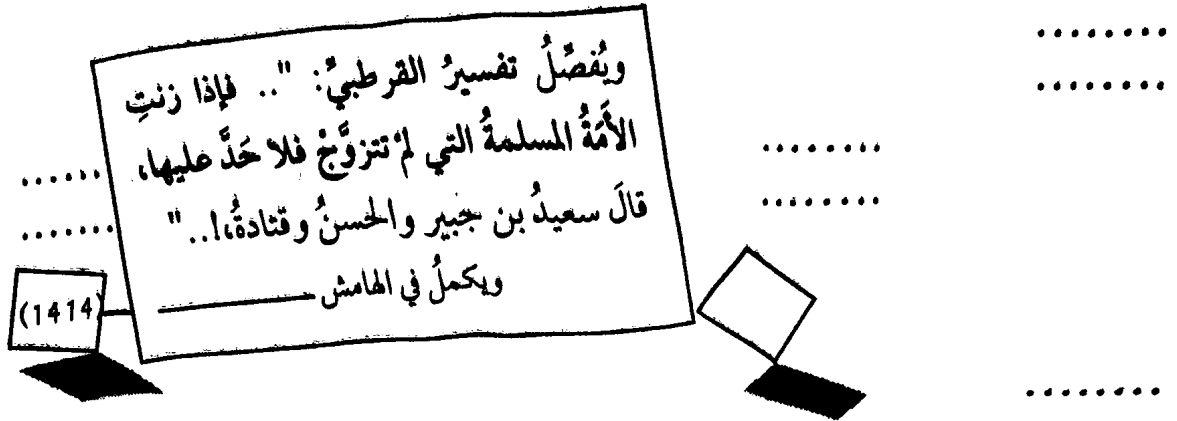 ويُفصِّلُ تفسيرُ القرطبيِّ: ".. فإذا زنتِ
الأَمَةُ المسلمةُ التي لمْ تتزوَّجْ فلا حَدَّ عليها،
قالَ سعيدُ بن جبير والحسنُ وقتادةُ،!.."
ويكملُ في الهامش
(1414)